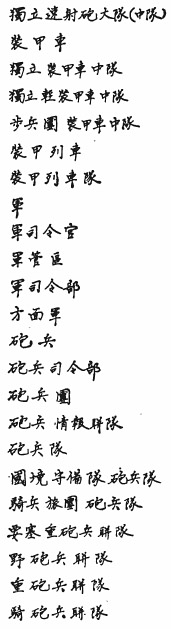 獨立速射砲大隊(中隊)
裝甲車
獨立裝甲車中隊
獨立輕裝甲車中隊
步兵團裝甲車中隊
裝甲列車
裝甲列車隊
軍
軍司令官
軍管區
軍司令部
方面軍
砲兵
砲兵司令部
砲兵團
砲兵情報聯隊
砲兵隊
國境守備隊砲兵隊
騎兵旅團砲兵隊
要塞重砲兵聯隊
野砲兵聯隊
重砲兵聯隊
騎砲兵聯隊